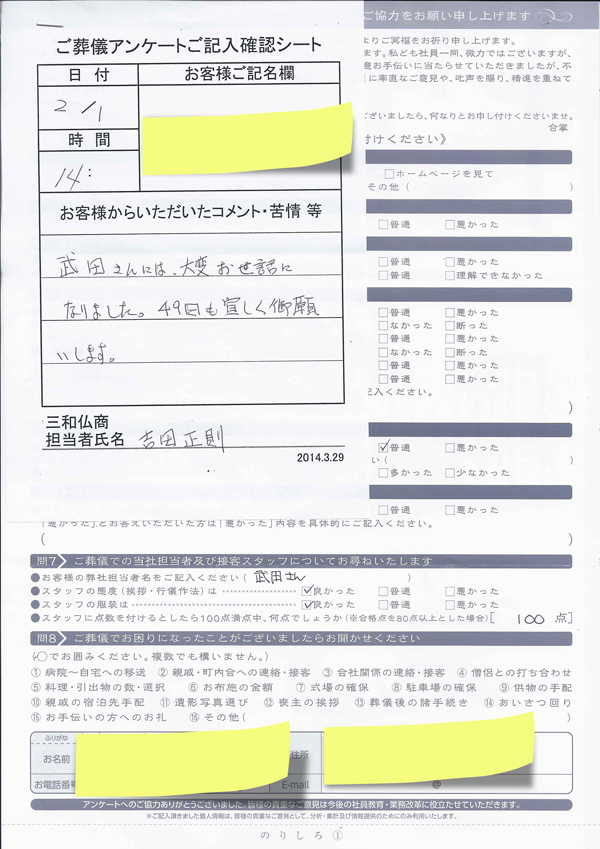 ご協力をお願い申し上げます
よりご冥福をお祈り申し上げます。
ます。私ども社員一同、微力ではございますが、
意お手伝いに当たらせていただきましたが、不
に率直なご意見や、叱声を賜り、精進を重ねて
ございましたら、何なりとお申し付けくださいませ。
合掌
付けください》
ご葬儀アンケートご記入確認シート
日付
お客様ご記名欄
2/1
時間
14:
お客様からいただいたコメント・苦情 等
武田さんには、大変お世話に
なりました。49日も宜しく御願
いします。
三和仏商
担当者氏名 吉田正則
2014.3.29
□ホームページを見て
その他( )
□普通 □悪かった
□普通 □悪かった
□普通 □理解できなかった
□普通 □悪かった
□なかった □断った
□普通 □悪かった
□なかった □断った
□普通 □悪かった
記入ください。
)
☑普通 □悪かった
い( )
□多かった □少なかった
□普通 □悪かった
「悪かった」とお答えいただいた方は「悪かった」内容を具体的にご記入ください。
( )
問7 ご葬儀での当社担当者及び接客スタッフについてお尋ねいたします
●お客様の弊社担当者名をご記入ください( 武田さん )
●スタッフの態度(挨拶・行儀作法)は ☑良かった □普通 □悪かった
●スタッフの服装は ☑良かった □普通 □悪かった
●スタッフに点数を付けるとしたら100点満点中、何点でしょうか(※合格点を80点以上とした場合)[ 100 点]
問8 ご葬儀でお困りになったことがございましたらお聞かせください
(○でお囲みください。複数でも構いません。)
①病院〜自宅への移送 ②親戚・町内会への連絡・接客 ③会社関係の連絡・接客 ④僧侶との打ち合わせ
⑤料理・引出物の数・選択 ⑥お布施の金額 ⑦式場の確保 ⑧駐車場の確保 ⑨供物の手配
⑩親戚の宿泊先手配 ⑪遺影写真選び ⑫喪主の挨拶 ⑬葬儀後の諸手続き ⑭あいさつ回り
⑮お手伝いの方へのお礼 ⑯その他( )
ふりがな
お名前
住所
お電話番号
E-mail @
アンケートへのご協力ありがとうございました。皆様の貴重なご意見は今後の社員教育・業務改革に役立たせていただきます。
※ご記入頂きました個人情報は、皆様の貴重なご意見として、分析・集計及び情報提供のためにのみ利用いたします。
のりしろ①